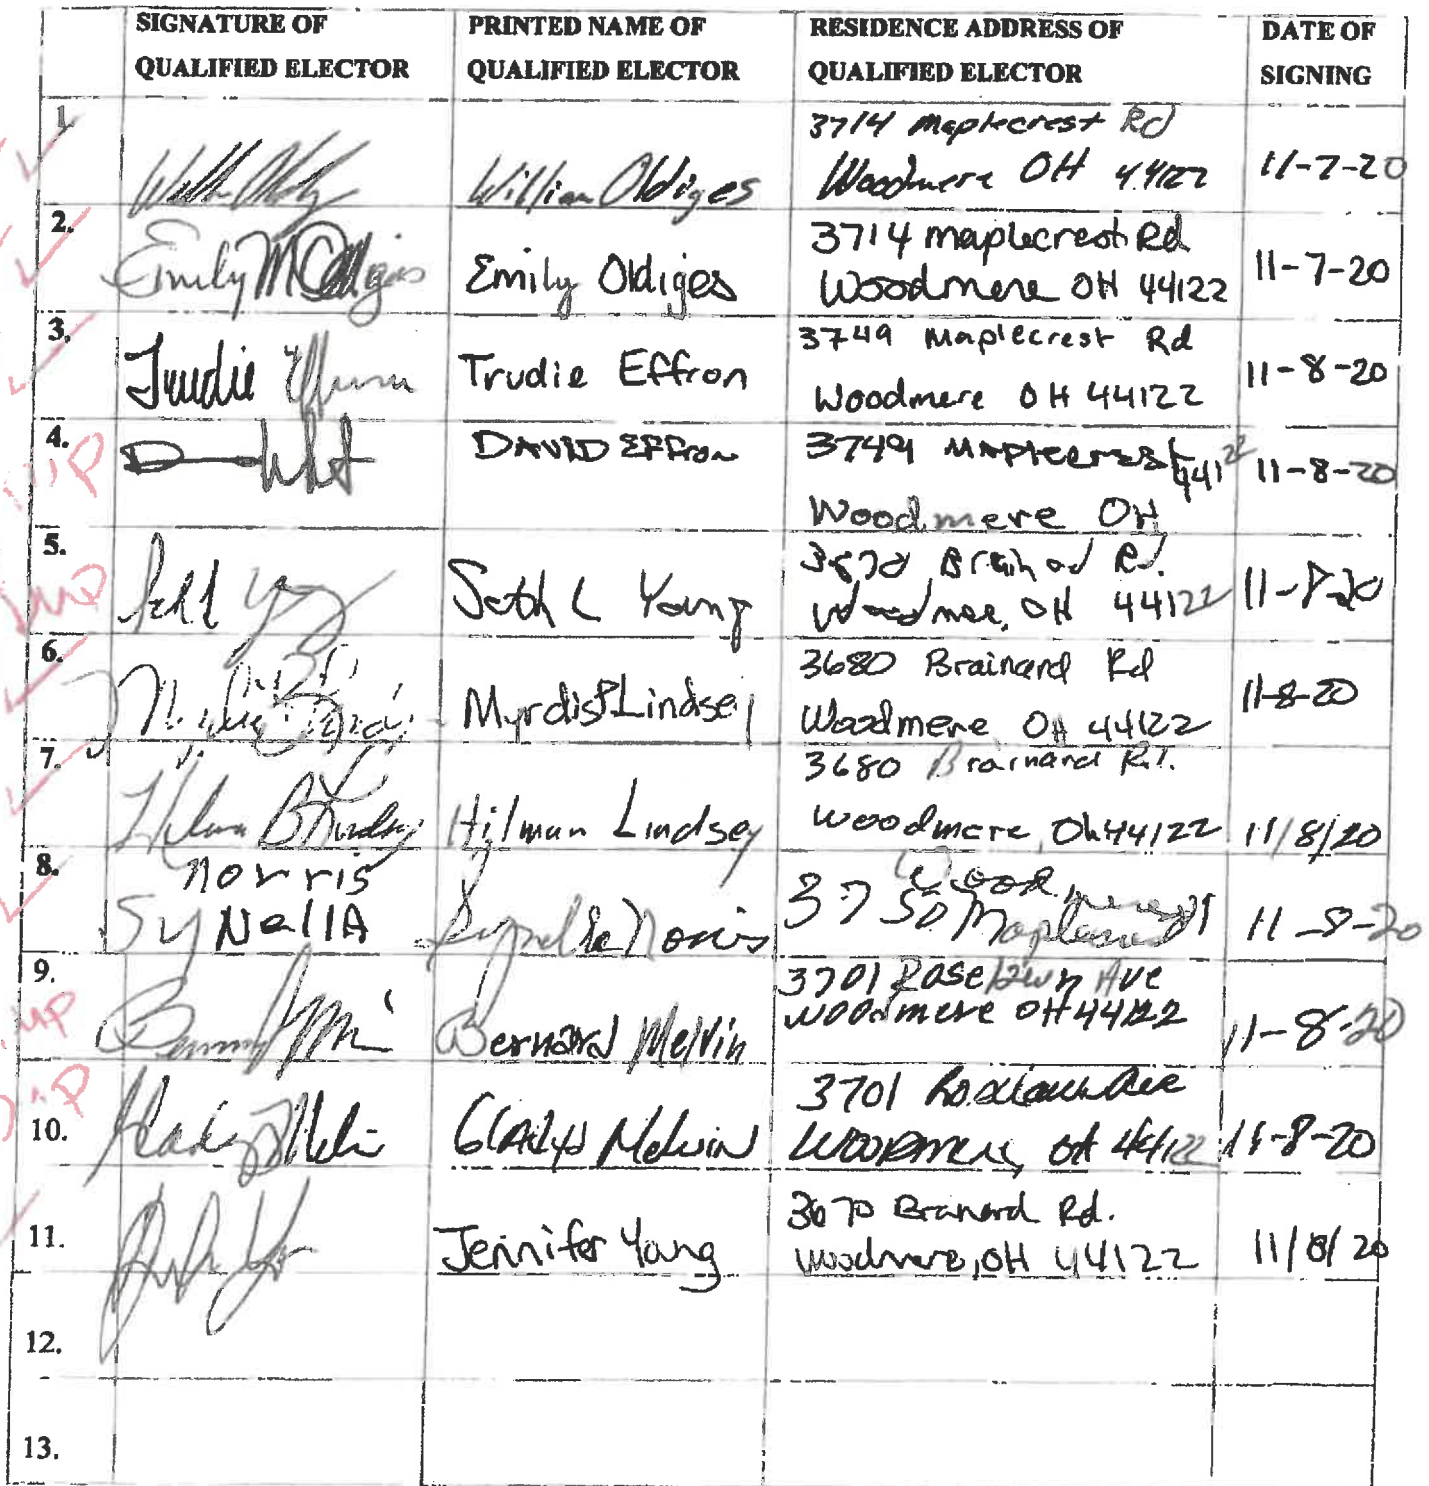 SIGNATURE OF QUALIFIED ELECTOR
PRINTED NAME OF QUALIFIED ELECTOR
RESIDENCE ADDRESS OF QUALIFIED ELECTOR
DATE OF SIGNING
1.
William Oldiges
3714 Maplecrest Rd
Woodmere OH 44122
11-7-20
2.
Emily M Oldiges
Emily Oldiges
3714 Maplecrest Rd
Woodmere OH 44122
11-7-20
3.
Trudie Effron
Trudie Effron
3749 Maplecrest Rd
Woodmere OH 44122
11-8-20
4.
DAVID EFFron
3749 Maplecrest 44122
Woodmere OH
11-8-20
5.
Seth Young
Seth L Young
Brainard Rd.
Woodmere, OH 44122
11-8-20
6.
Myrdis P Lindsey
3680 Brainard Rd
Woodmere OH 44122
11-8-20
7.
Hilman B Lindsey
Hilman Lindsey
3680 Brainard Rd.
Woodmere, Oh 44122
11/8/20
8.
Norris
SyNellA
Synella Norris
Woodmere
3750 Maplecrest
11-8-20
9.
Bernard Melvin
3701 Roselawn Ave
Woodmere OH 44122
11-8-20
10.
Gladys Melvin
GlAdys Melvin
3701 Roselawn Ave
Woodmere, OH 44122
11-8-20
11.
Jennifer Young
3670 Branard Rd.
Woodmere, OH 44122
11/8/20
12.
13.